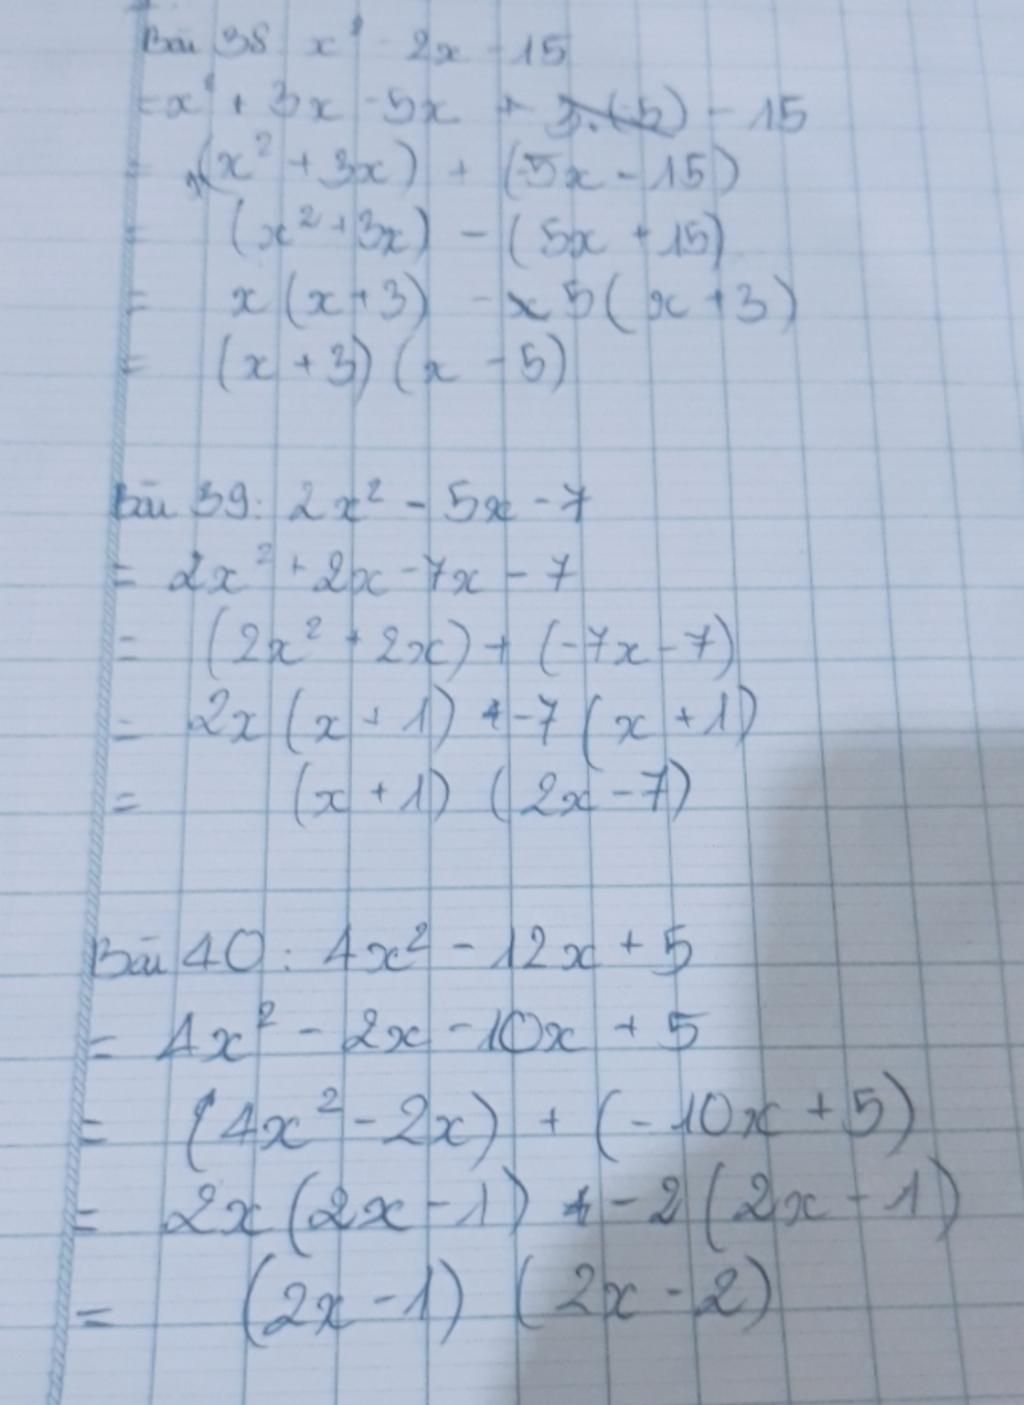 Bài 38 x² - 2x - 15
= x² + 3x - 5x + 3.(-5) - 15
= (x² + 3x) + (-5x - 15)
= (x² + 3x) - (5x + 15)
= x(x + 3) - x 5(x + 3)
= (x + 3)(x - 5)
Bài 39: 2x² - 5x - 7
= 2x² + 2x - 7x - 7
= (2x² + 2x) + (-7x - 7)
= 2x(x + 1) + -7(x + 1)
= (x + 1) (2x - 7)
Bài 40: 4x² - 12x + 5
= 4x² - 2x - 10x + 5
= (4x² - 2x) + (-10x + 5)
= 2x(2x - 1) + -2(2x - 1)
= (2x - 1) (2x - 2)